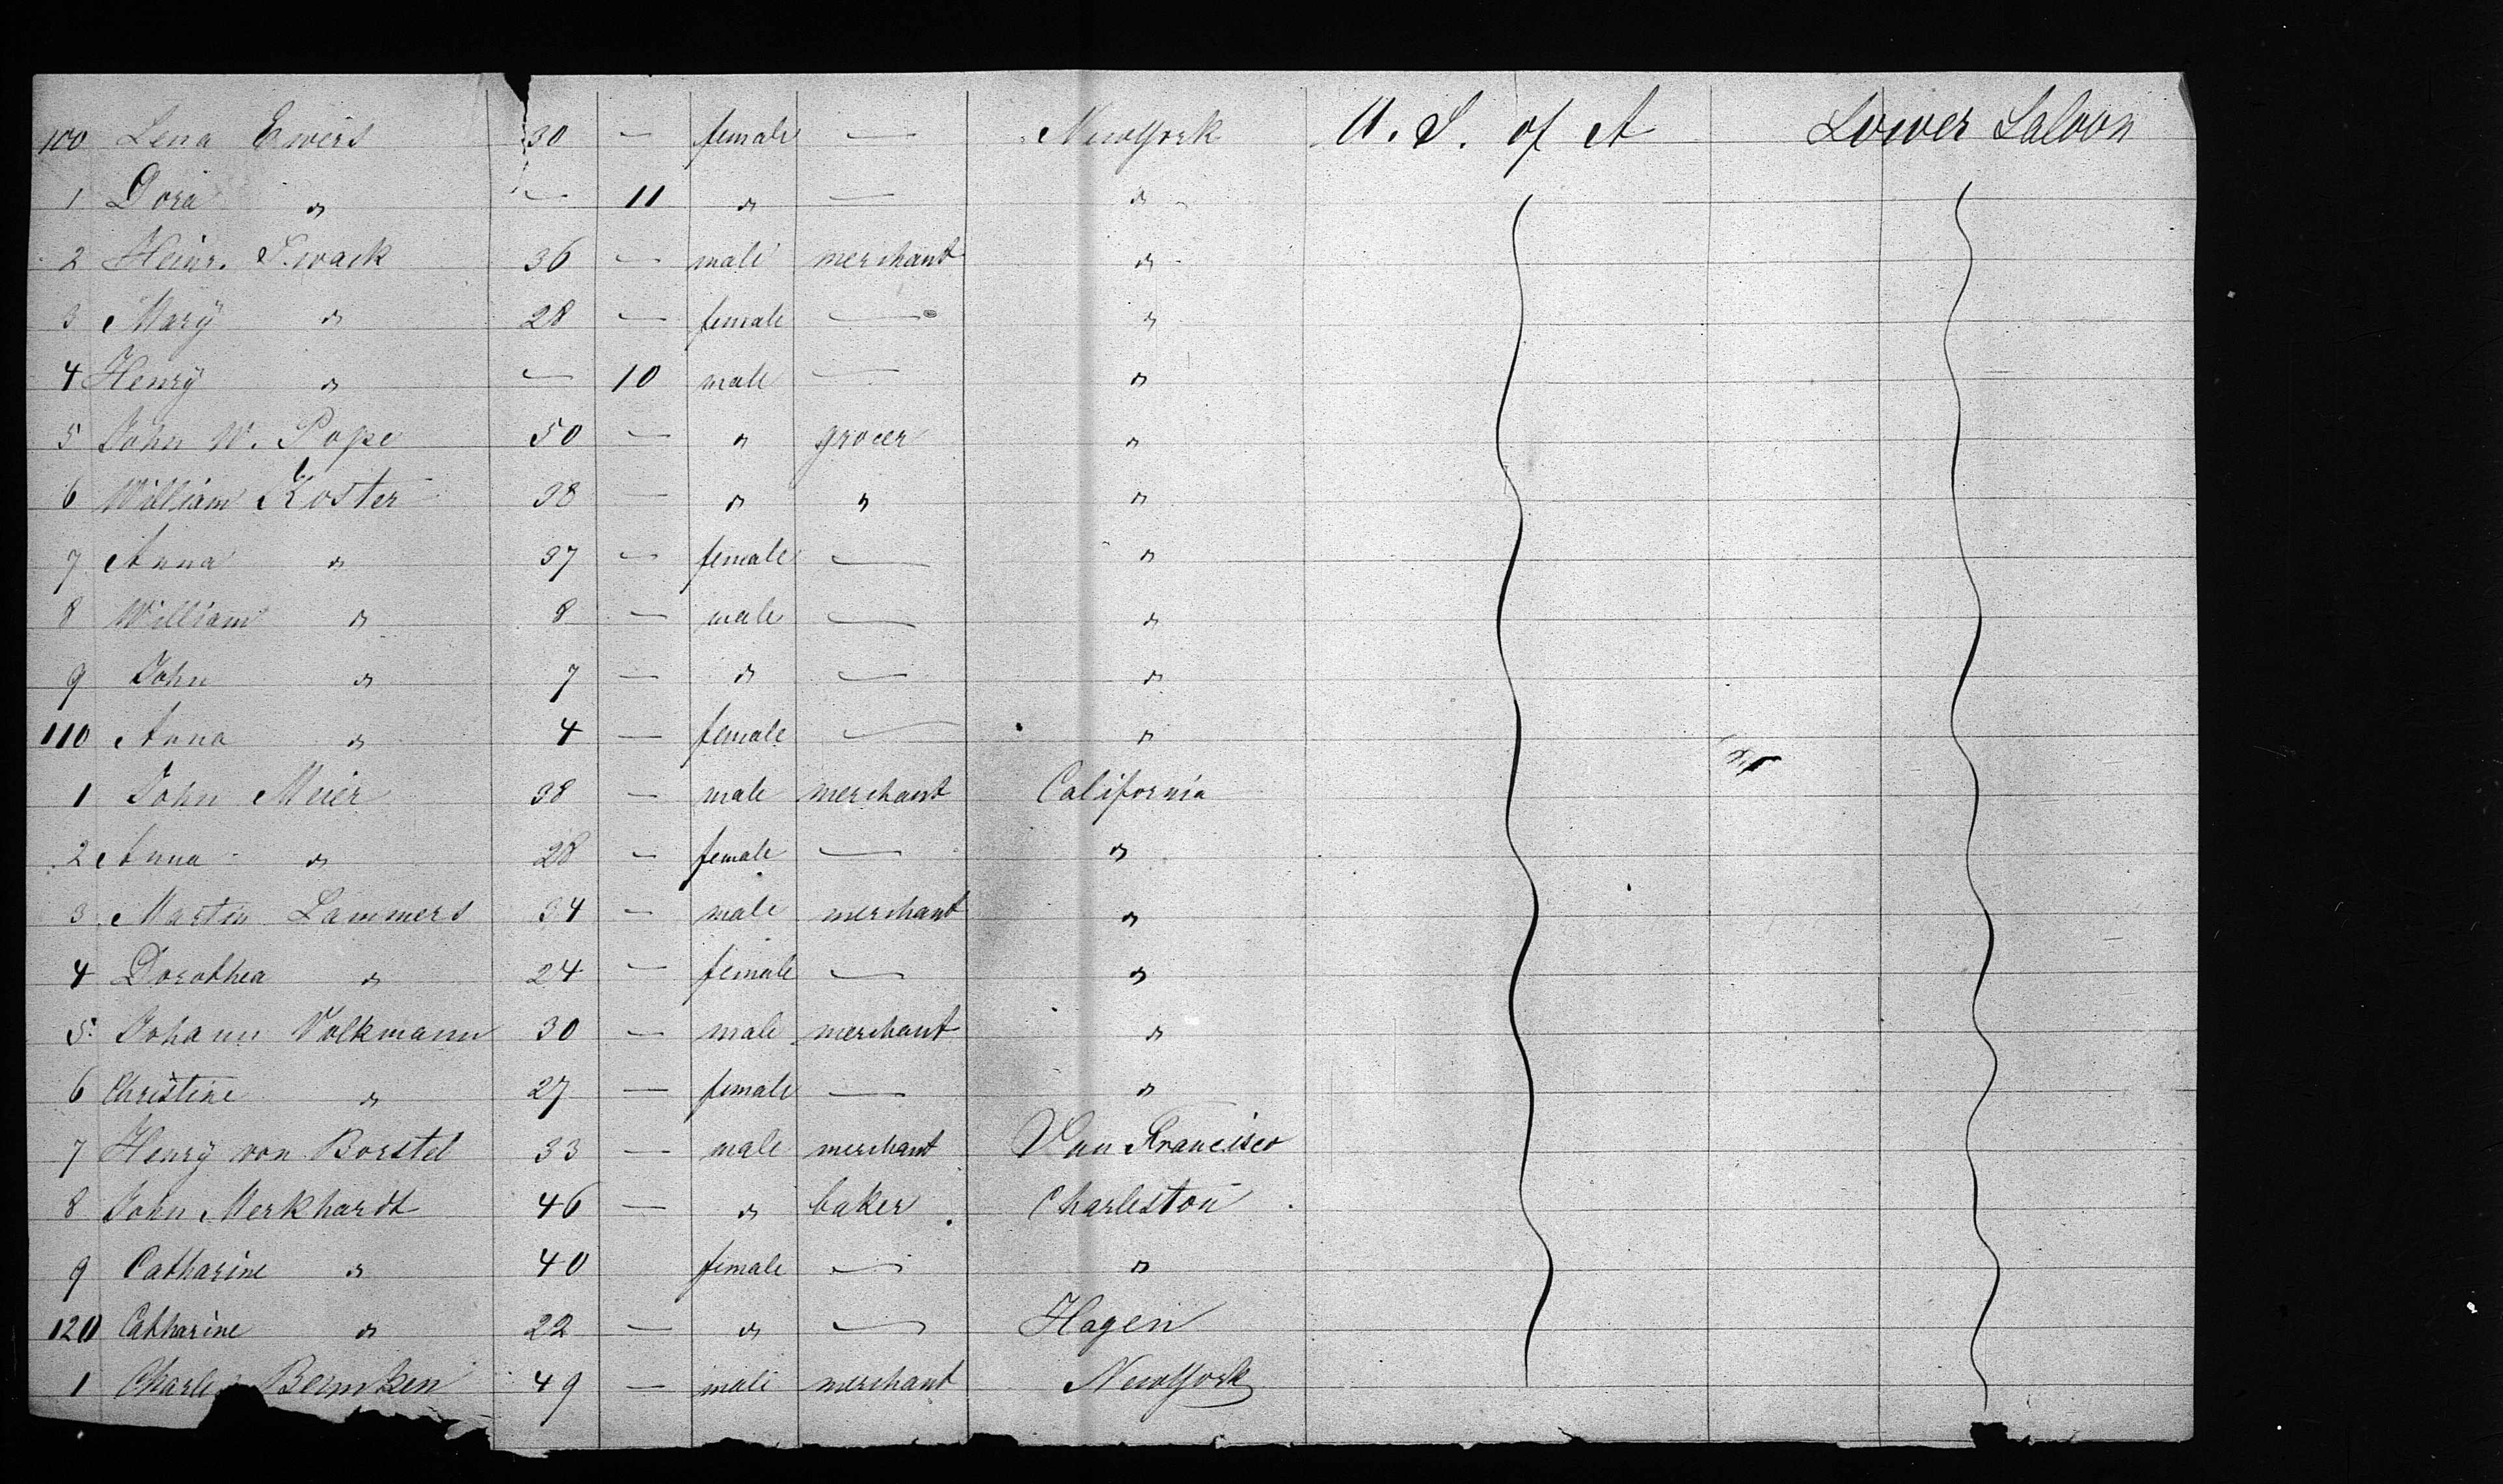 100 Lena Ewers 30 — female — New York U. S. of A Lower Saloon
1 Dora " — 11 " — "
2 Heinr. 36 — male merchant "
3 Mary " 28 — female — "
4 Henry " — 10 male — "
5 John W. Pope 50 — " grocer "
6 William Koster 38 — " " "
7 Anna " 37 — female — "
8 William " 8 — male — "
9 John " 7 — " — "
110 Anna " 4 — female — "
1 John Meier 38 — male merchant California
2 Anna " 28 — female — "
3 Martin Lammers 34 — male merchant "
4 Dorothea " 24 — female — "
5 Johann Volkmann 30 — male merchant "
6 Christine " 27 — female — "
7 Henry von Borstel 33 — male merchant San Francisco
8 John Merkhardt 46 — " baker Charleston
9 Catharine " 40 — female — "
120 Catharine " 22 — " — Hagen
1 49 — male merchant New York